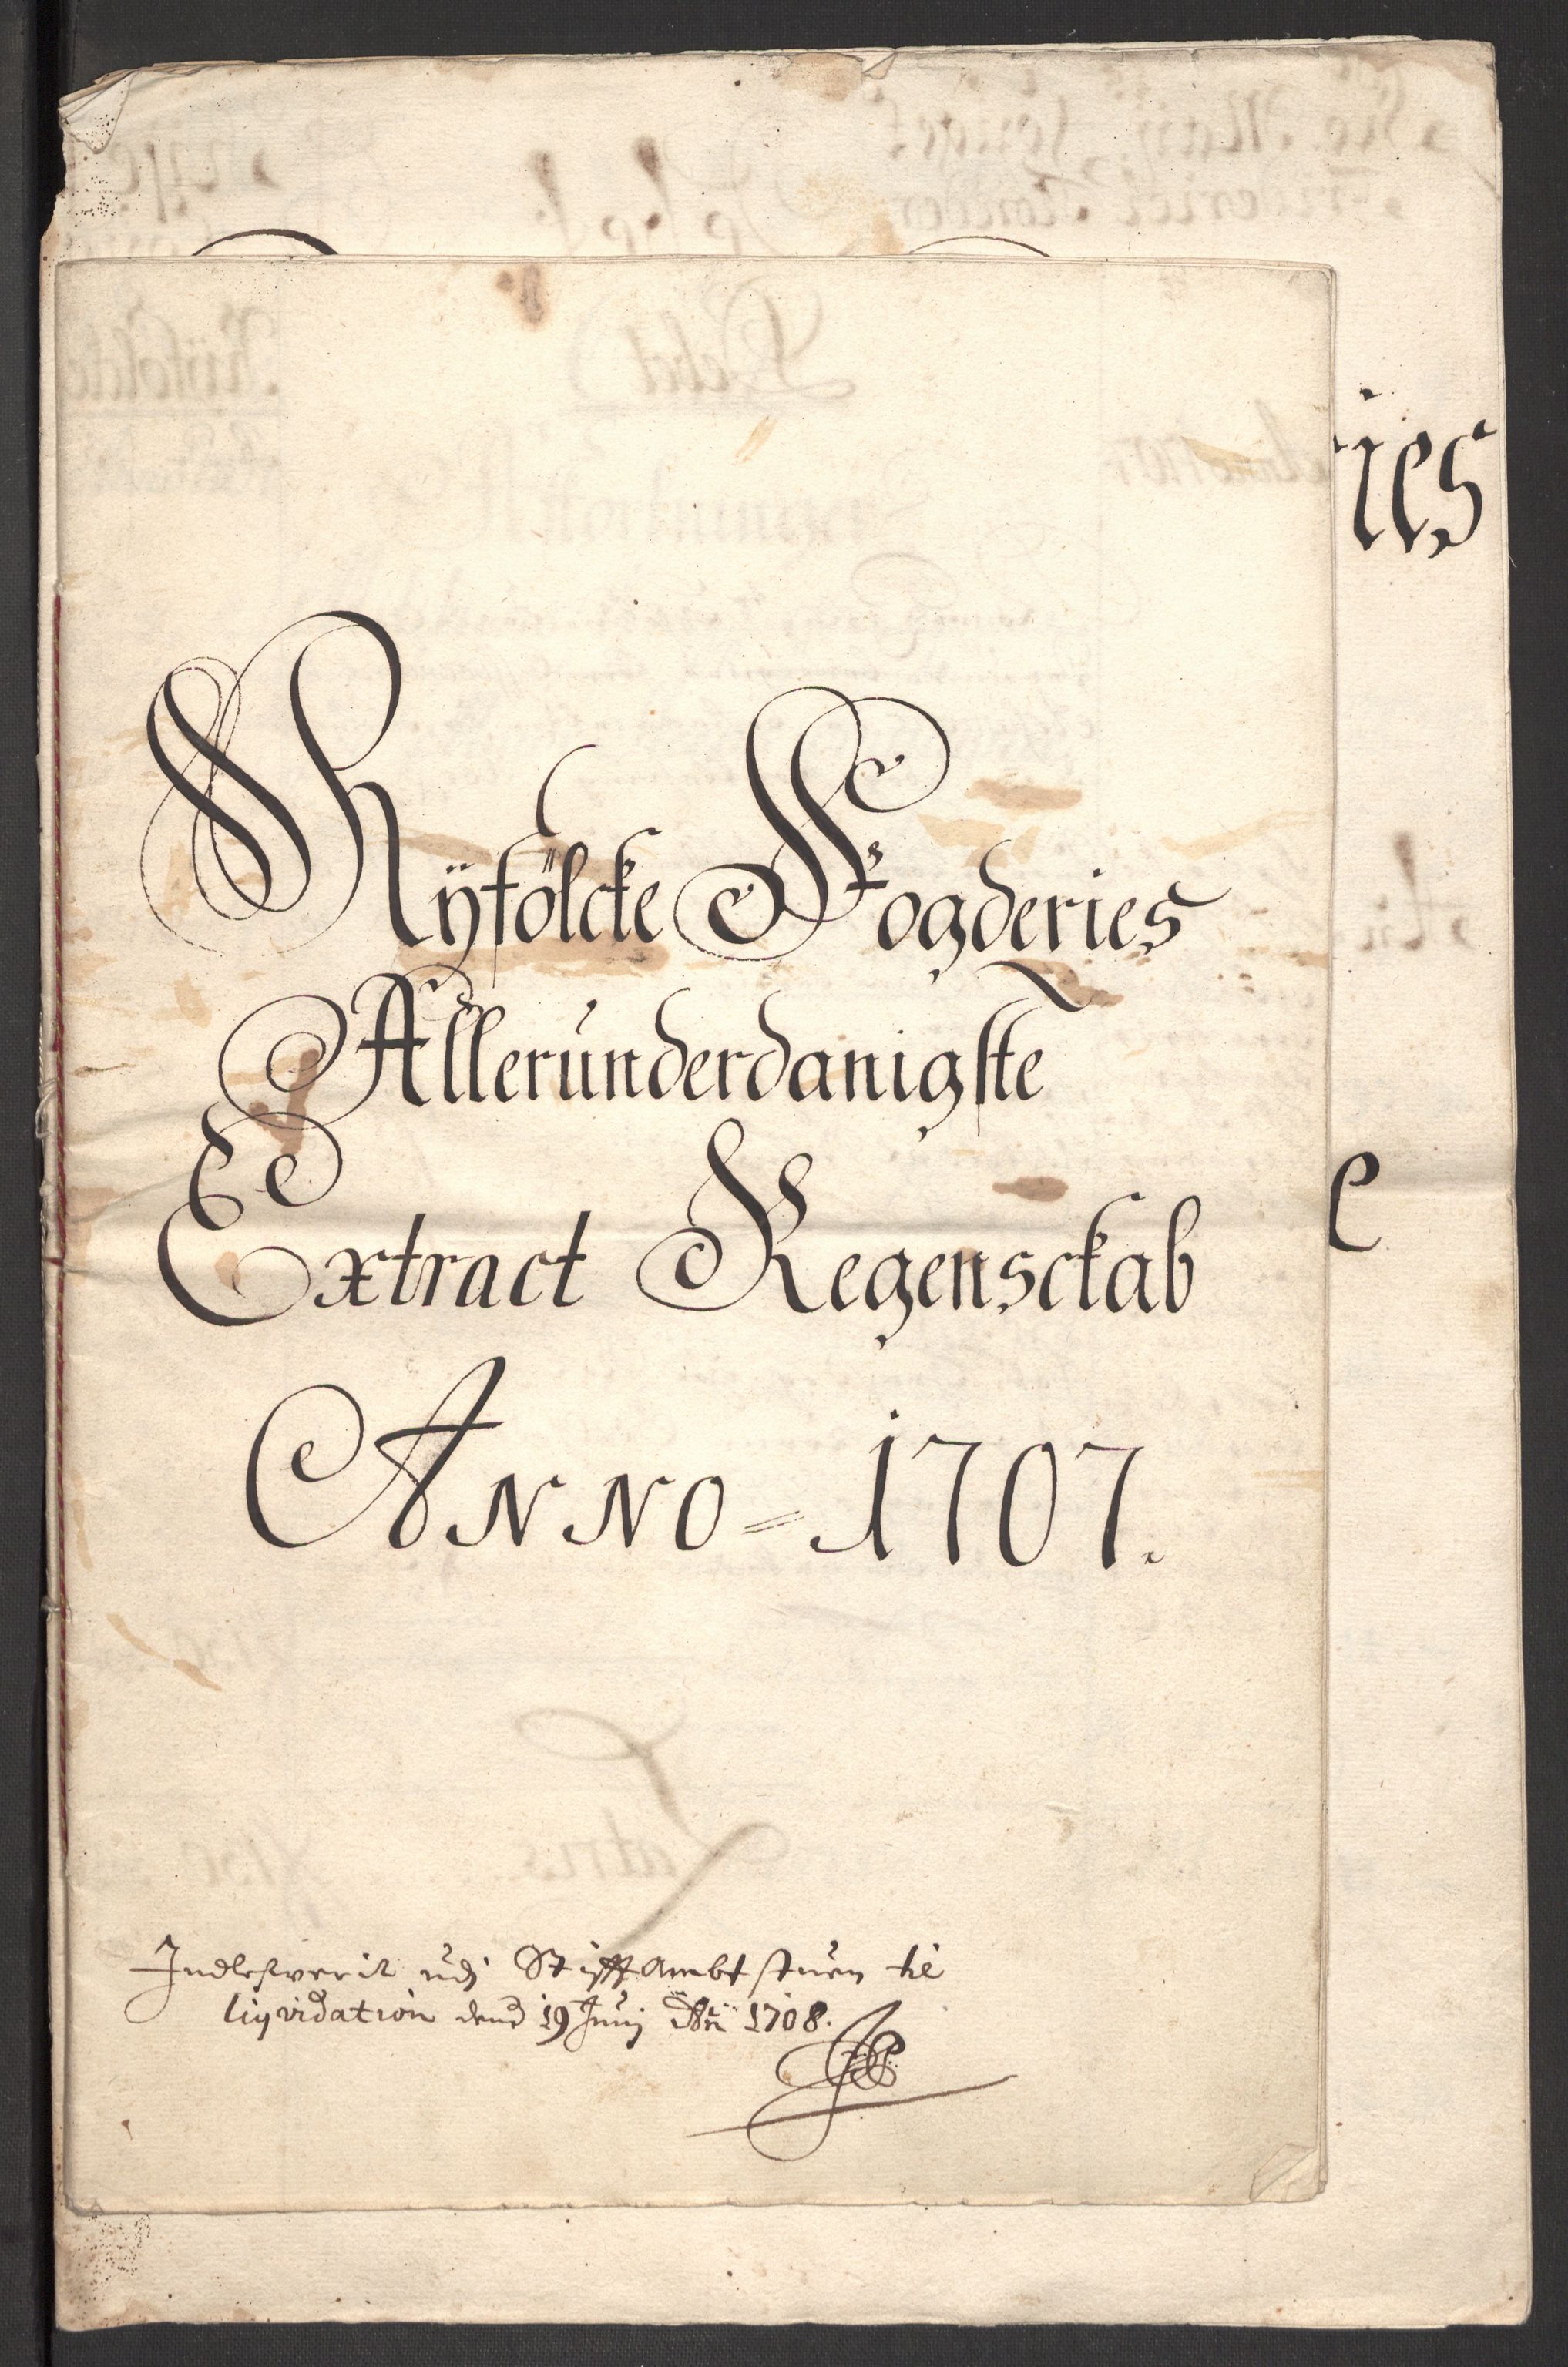 Ryfölcke Fogderies
Allerúnderdanigste
Extract Regensckab
Anno = 1707.
Indlefverit udj Stifft Ambtstuen til
liqvidation dend 19 Junj An: 1708.
ies
e